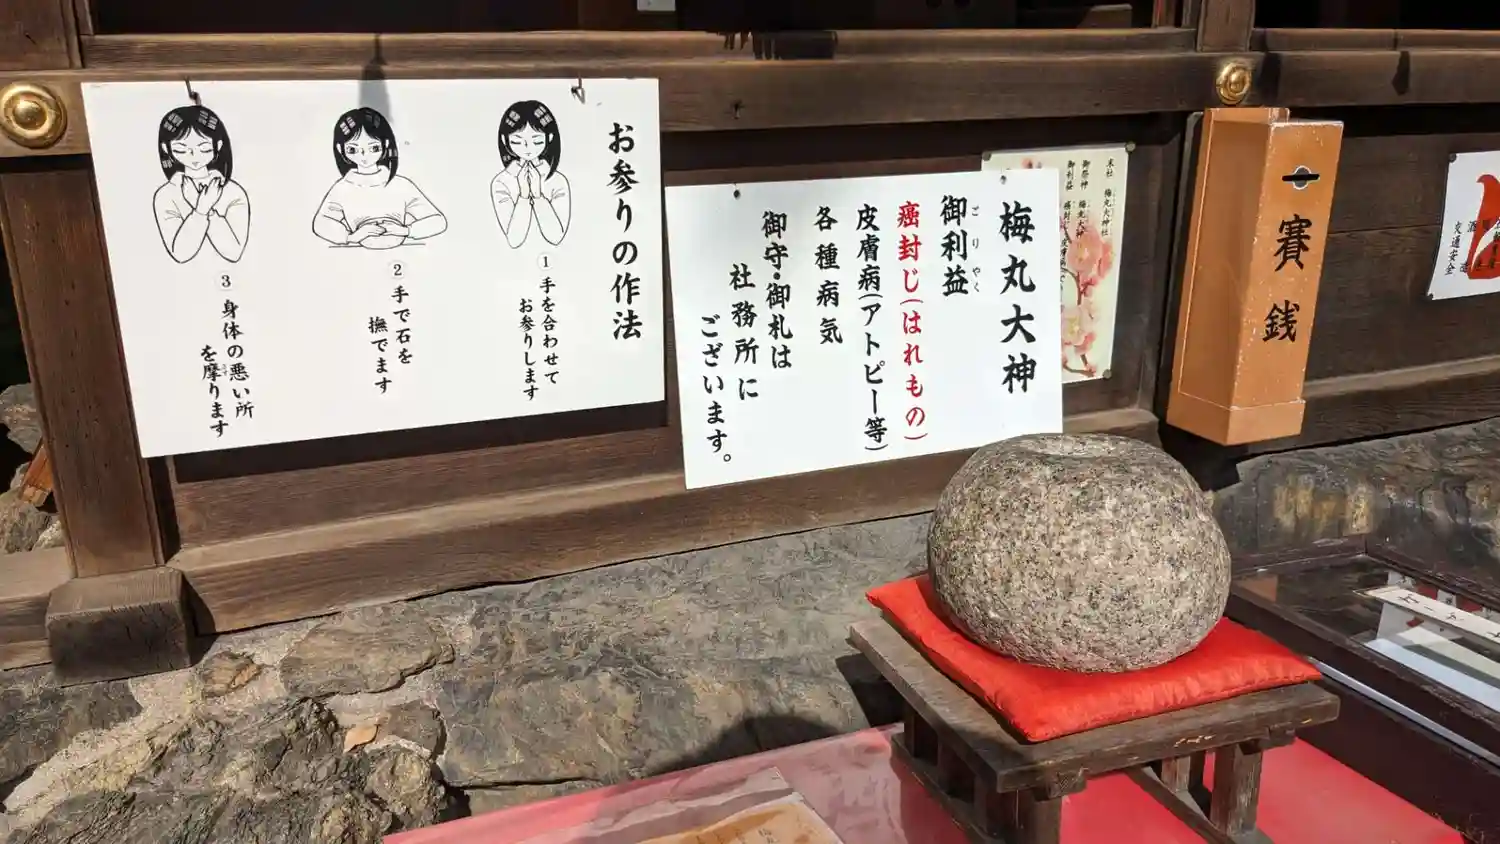 お参りの作法
① 手を合わせて
お参りします
② 手で石を
撫でます
③ 身体の悪い所
を摩ります
梅丸大神
御利益
ごりやく
癌封じ(はれもの)
皮膚病(アトピー等)
各種病気
御守・御札は
社務所に
ございます。
末社 梅丸大神社
御祭神 梅丸大神
御利益 癌封じ
賽銭
交通安全